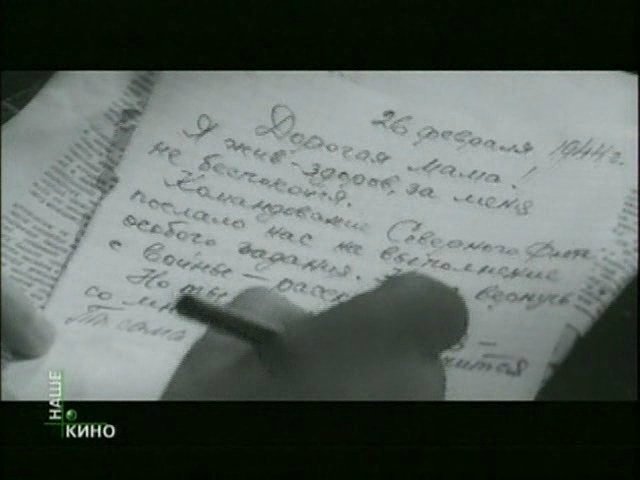 26 февраля 1944 г.
Дорогая мама!
Я жив-здоров, за меня
не беспокойся.
Командование Северного Флота
послало нас на выполнение
особого задания. вернусь
с войны —
Но ты
со мн
Ты сама
НАШЕ
КИНО